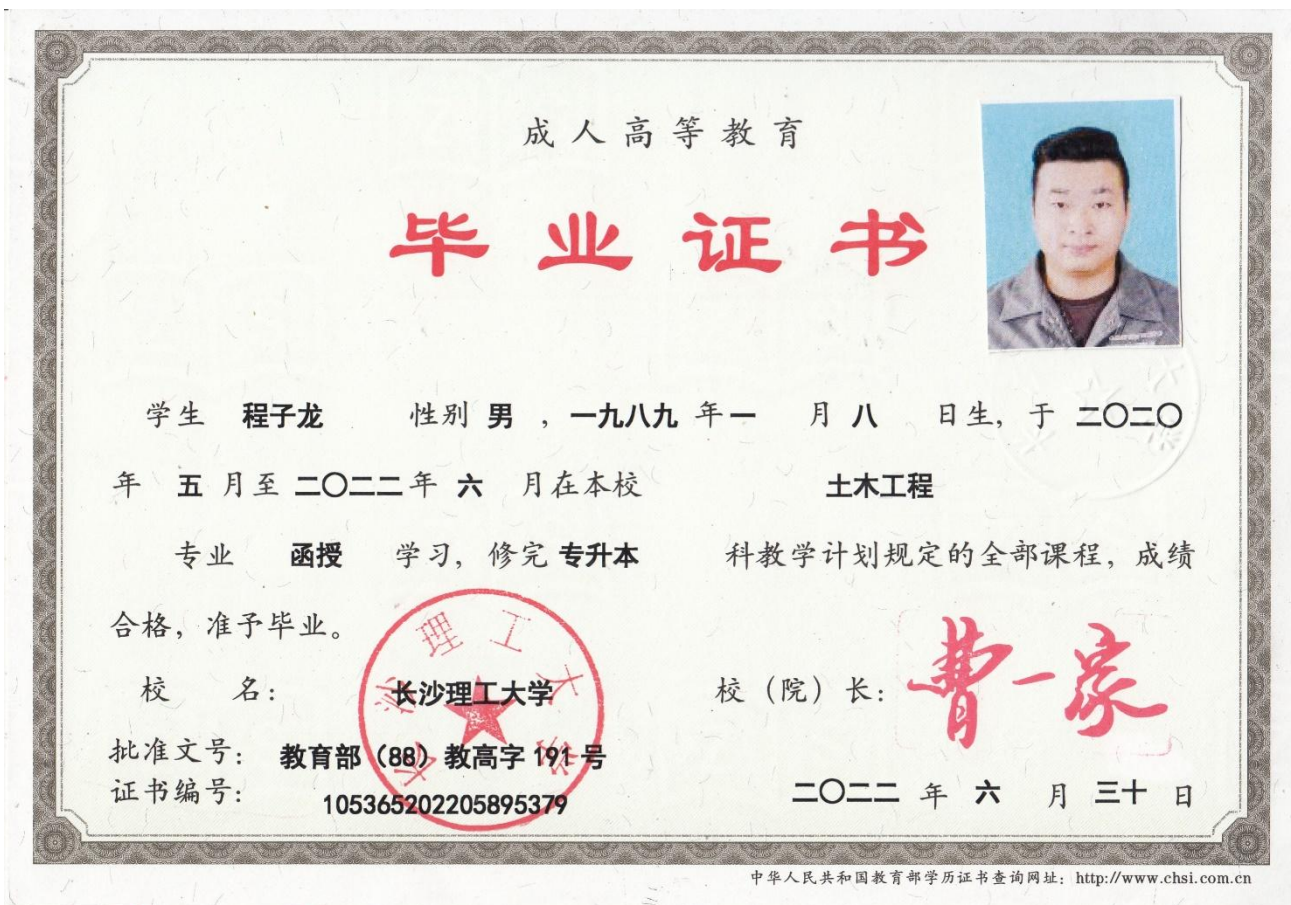 成人高等教育
毕业证书
学生 程子龙 性别 男 ，一九八九 年 一 月 八 日生，于 二〇二〇
年 五 月至 二〇二二 年 六 月在本校 土木工程
专业 函授 学习，修完 专升本 科教学计划规定的全部课程，成绩
合格，准予毕业。
校 名： 长沙理工大学 校（院）长： 曹一家
长沙理工大学
批准文号： 教育部（88）教高字 191 号
证书编号： 105365202205895379 二〇二二 年 六 月 三十 日
中华人民共和国教育部学历证书查询网址：http://www.chsi.com.cn